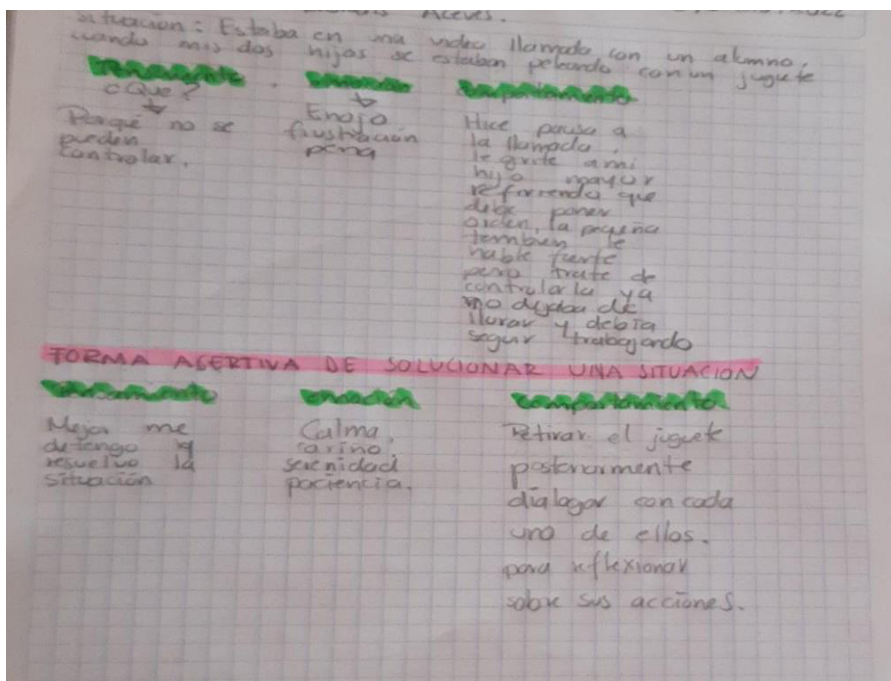 Aceves.
situacion: Estaba en una video llamada con un alumno,
cuando mis dos hijos se estaban peleando con un jugete
Pensamiento. Emoción Comportamiento
¿Que?
Porqué no se
pueden
controlar.
Enojo
frustración
pena
Hice pausa a
la llamada,
le grite a mi
hijo mayor
refiriendo que
debe poner
orden, la pequeña
tambien le
hable fuerte
pero trate de
controlarla ya
no dejaba de
llorar y debia
seguir trabajando
FORMA ASERTIVA DE SOLUCIONAR UNA SITUACION
Pensamiento Emoción Comportamiento
Mejor me
detengo y
resuelvo la
situación
Calma,
cariño,
serenidad
paciencia.
Retirar el jugete
posteriormente
dialogar con cada
uno de ellos.
para reflexionar
sobre sus acciones.